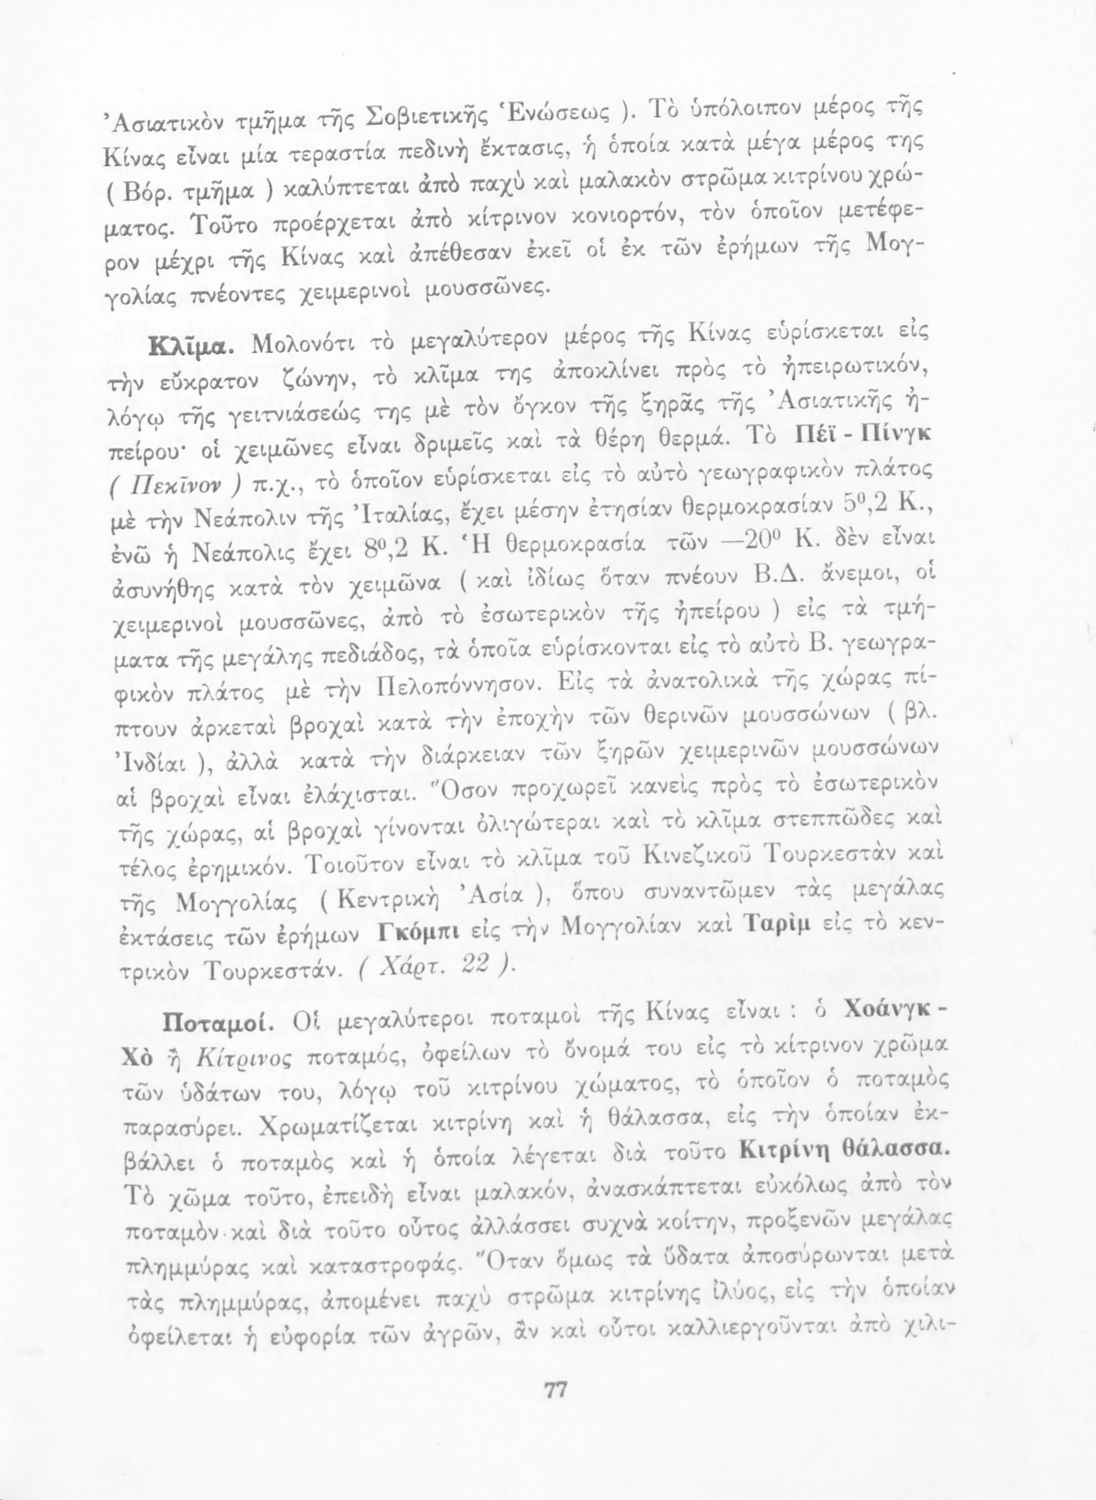 Ἀσιατικὸν τμῆμα τῆς Σοβιετικῆς Ἑνώσεως ). Τὸ ὑπόλοιπον μέρος τῆς
Κίνας εἶναι μία τεραστία πεδινὴ ἔκτασις, ἡ ὁποία κατὰ μέγα μέρος της
( Βόρ. τμῆμα ) καλύπτεται ἀπὸ παχὺ καὶ μαλακὸν στρῶμα κιτρίνου χρώ-
ματος. Τοῦτο προέρχεται ἀπὸ κίτρινον κονιορτόν, τὸν ὁποῖον μετέφε-
ρον μέχρι τῆς Κίνας καὶ ἀπέθεσαν ἐκεῖ οἱ ἐκ τῶν ἐρήμων τῆς Μογ-
γολίας πνέοντες χειμερινοὶ μουσσῶνες.
Κλῖμα. Μολονότι τὸ μεγαλύτερον μέρος τῆς Κίνας εὑρίσκεται εἰς
τὴν εὔκρατον ζώνην, τὸ κλῖμα της ἀποκλίνει πρὸς τὸ ἠπειρωτικόν,
λόγῳ τῆς γειτνιάσεώς της μὲ τὸν ὄγκον τῆς ξηρᾶς τῆς Ἀσιατικῆς ἠ-
πείρου· οἱ χειμῶνες εἶναι δριμεῖς καὶ τὰ θέρη θερμά. Τὸ Πέϊ - Πίνγκ
( Πεκῖνον ) π.χ., τὸ ὁποῖον εὑρίσκεται εἰς τὸ αὐτὸ γεωγραφικὸν πλάτος
μὲ τὴν Νεάπολιν τῆς Ἰταλίας, ἔχει μέσην ἐτησίαν θερμοκρασίαν 5⁰,2 Κ.,
ἐνῶ ἡ Νεάπολις ἔχει 8⁰,2 Κ. Ἡ θερμοκρασία τῶν —20⁰ Κ. δὲν εἶναι
ἀσυνήθης κατὰ τὸν χειμῶνα ( καὶ ἰδίως ὅταν πνέουν Β.Δ. ἄνεμοι, οἱ
χειμερινοὶ μουσσῶνες, ἀπὸ τὸ ἐσωτερικὸν τῆς ἠπείρου ) εἰς τὰ τμή-
ματα τῆς μεγάλης πεδιάδος, τὰ ὁποῖα εὑρίσκονται εἰς τὸ αὐτὸ Β. γεωγρα-
φικὸν πλάτος μὲ τὴν Πελοπόννησον. Εἰς τὰ ἀνατολικὰ τῆς χώρας πί-
πτουν ἀρκεταὶ βροχαὶ κατὰ τὴν ἐποχὴν τῶν θερινῶν μουσσώνων ( βλ.
Ἰνδίαι ), ἀλλὰ κατὰ τὴν διάρκειαν τῶν ξηρῶν χειμερινῶν μουσσώνων
αἱ βροχαὶ εἶναι ἐλάχισται. Ὅσον προχωρεῖ κανεὶς πρὸς τὸ ἐσωτερικὸν
τῆς χώρας, αἱ βροχαὶ γίνονται ὀλιγώτεραι καὶ τὸ κλῖμα στεππῶδες καὶ
τέλος ἐρημικόν. Τοιοῦτον εἶναι τὸ κλῖμα τοῦ Κινεζικοῦ Τουρκεστὰν καὶ
τῆς Μογγολίας ( Κεντρικὴ Ἀσία ), ὅπου συναντῶμεν τὰς μεγάλας
ἐκτάσεις τῶν ἐρήμων Γκόμπι εἰς τὴν Μογγολίαν καὶ Ταρὶμ εἰς τὸ κεν-
τρικὸν Τουρκεστάν. ( Χάρτ. 22 ).
Ποταμοί. Οἱ μεγαλύτεροι ποταμοὶ τῆς Κίνας εἶναι : ὁ Χοάνγκ -
Χὸ ἢ Κίτρινος ποταμός, ὀφείλων τὸ ὄνομά του εἰς τὸ κίτρινον χρῶμα
τῶν ὑδάτων του, λόγῳ τοῦ κιτρίνου χώματος, τὸ ὁποῖον ὁ ποταμὸς
παρασύρει. Χρωματίζεται κιτρίνη καὶ ἡ θάλασσα, εἰς τὴν ὁποίαν ἐκ-
βάλλει ὁ ποταμὸς καὶ ἡ ὁποία λέγεται διὰ τοῦτο Κιτρίνη θάλασσα.
Τὸ χῶμα τοῦτο, ἐπειδὴ εἶναι μαλακόν, ἀνασκάπτεται εὐκόλως ἀπὸ τὸν
ποταμὸν καὶ διὰ τοῦτο οὗτος ἀλλάσσει συχνὰ κοίτην, προξενῶν μεγάλας
πλημμύρας καὶ καταστροφάς. Ὅταν ὅμως τὰ ὕδατα ἀποσύρωνται μετὰ
τὰς πλημμύρας, ἀπομένει παχὺ στρῶμα κιτρίνης ἰλύος, εἰς τὴν ὁποίαν
ὀφείλεται ἡ εὐφορία τῶν ἀγρῶν, ἂν καὶ οὗτοι καλλιεργοῦνται ἀπὸ χιλι-
77